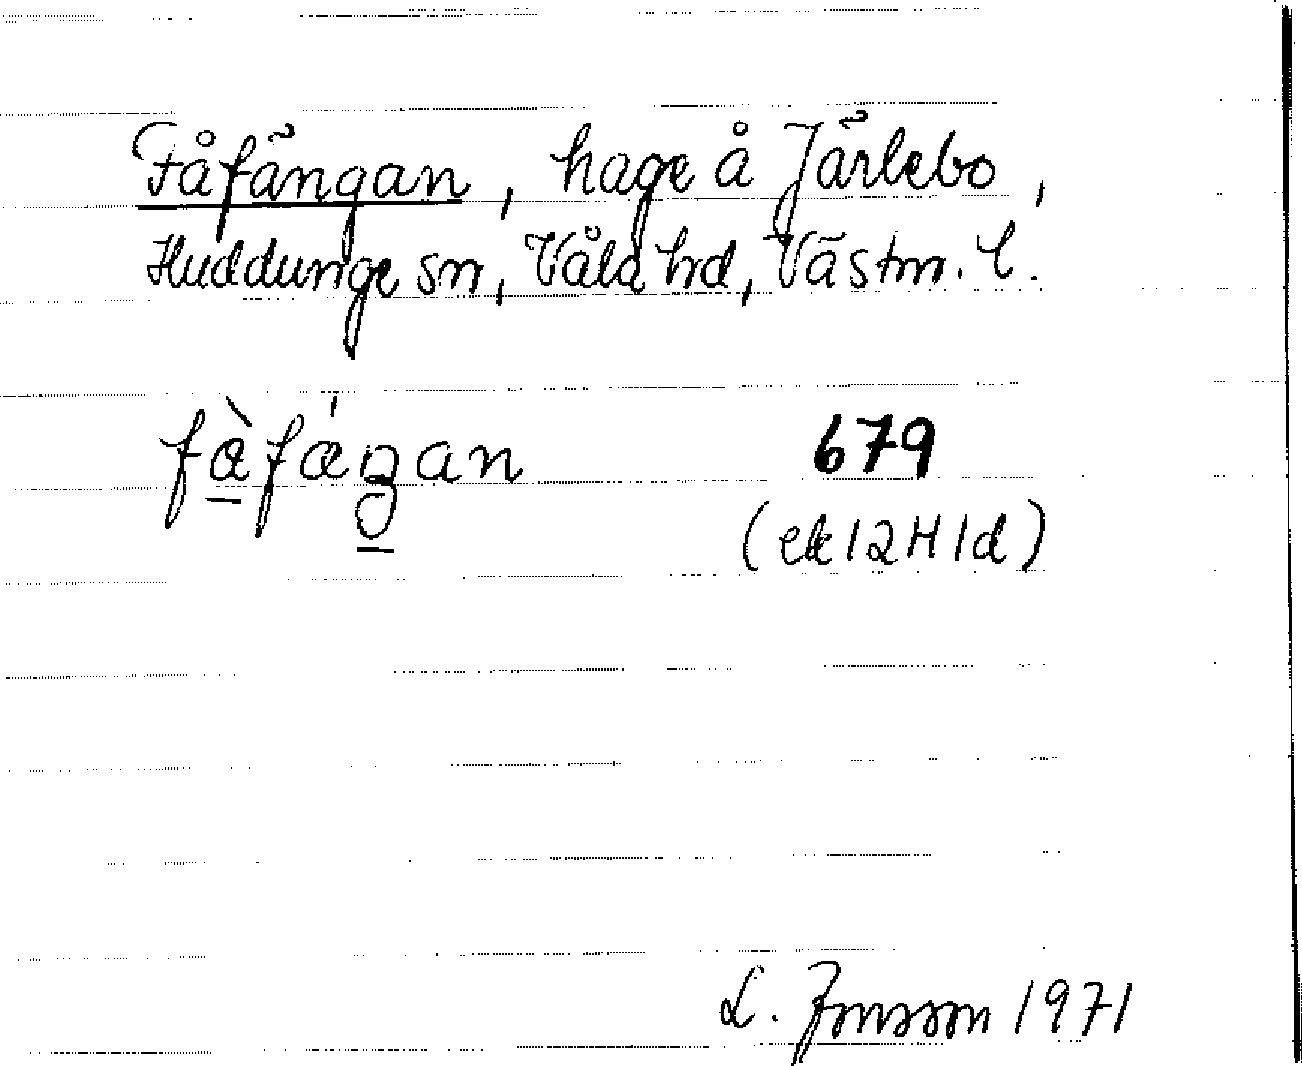 Fåfängan, hage å Järlebo,
Huddunge sn, Våla hd, Västm. l.
fàfáŋan 679
(ek 12H1d)
L. Jonsson 1971